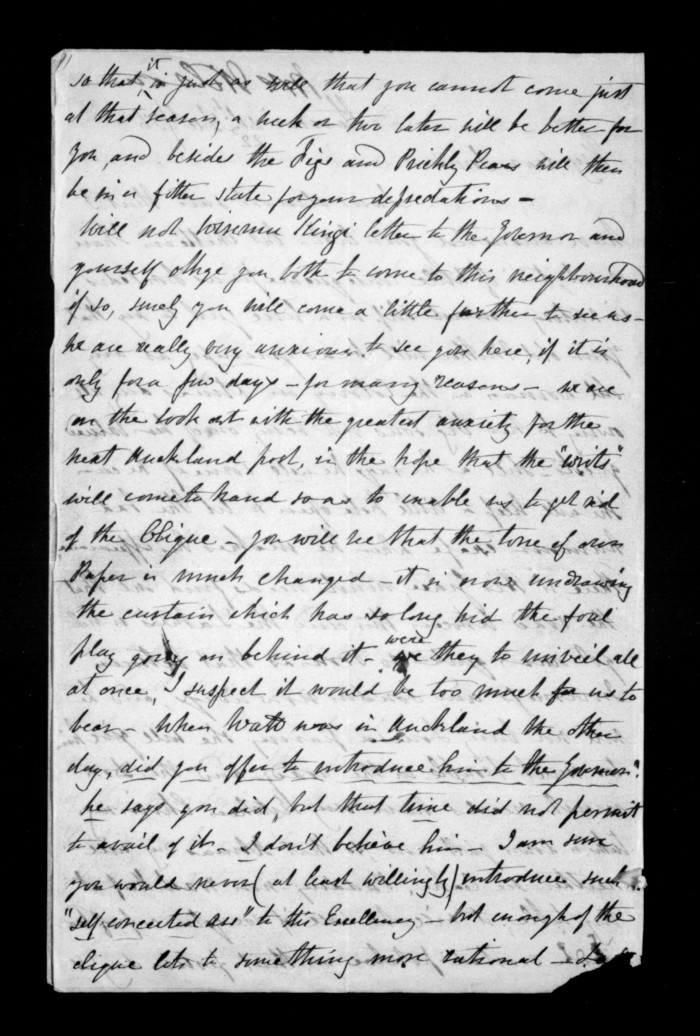 so that it is just as well that you cannot come just
at that season, a week or two later will be better for
you, and besides the Figs and Prickly Pears will then
be in a fitter state for your depredations -
Will not Wiremu Kingi letter to the Governor and
yourself oblige you both to come to this neighbourhood
if so, surely you will come a little further to see us -
we are really very anxious to see you here, if it is
only for a few days - for many reasons - we are
on the look out with the greatest anxiety for the
next Auckland post, in the hope that the "writs"
will come to hand so as to enable us to get rid
of the Clique - you will see that the tone of our
Paper is much changed - it is now undrawing
the curtain which has so long hid the foul
play going on behind it - were they to unveil all
at once, I suspect it would be too much for us to
bear - When Watt was in Auckland the other
day, did you offer to introduce him to the Governor?
he says you did, but that time did not permit
to avail of it - I don't believe him - I am sure
you would never (at least willingly) introduce such
"self conceited ass" to His Excellency - but enough of the
clique lets to something more rational -